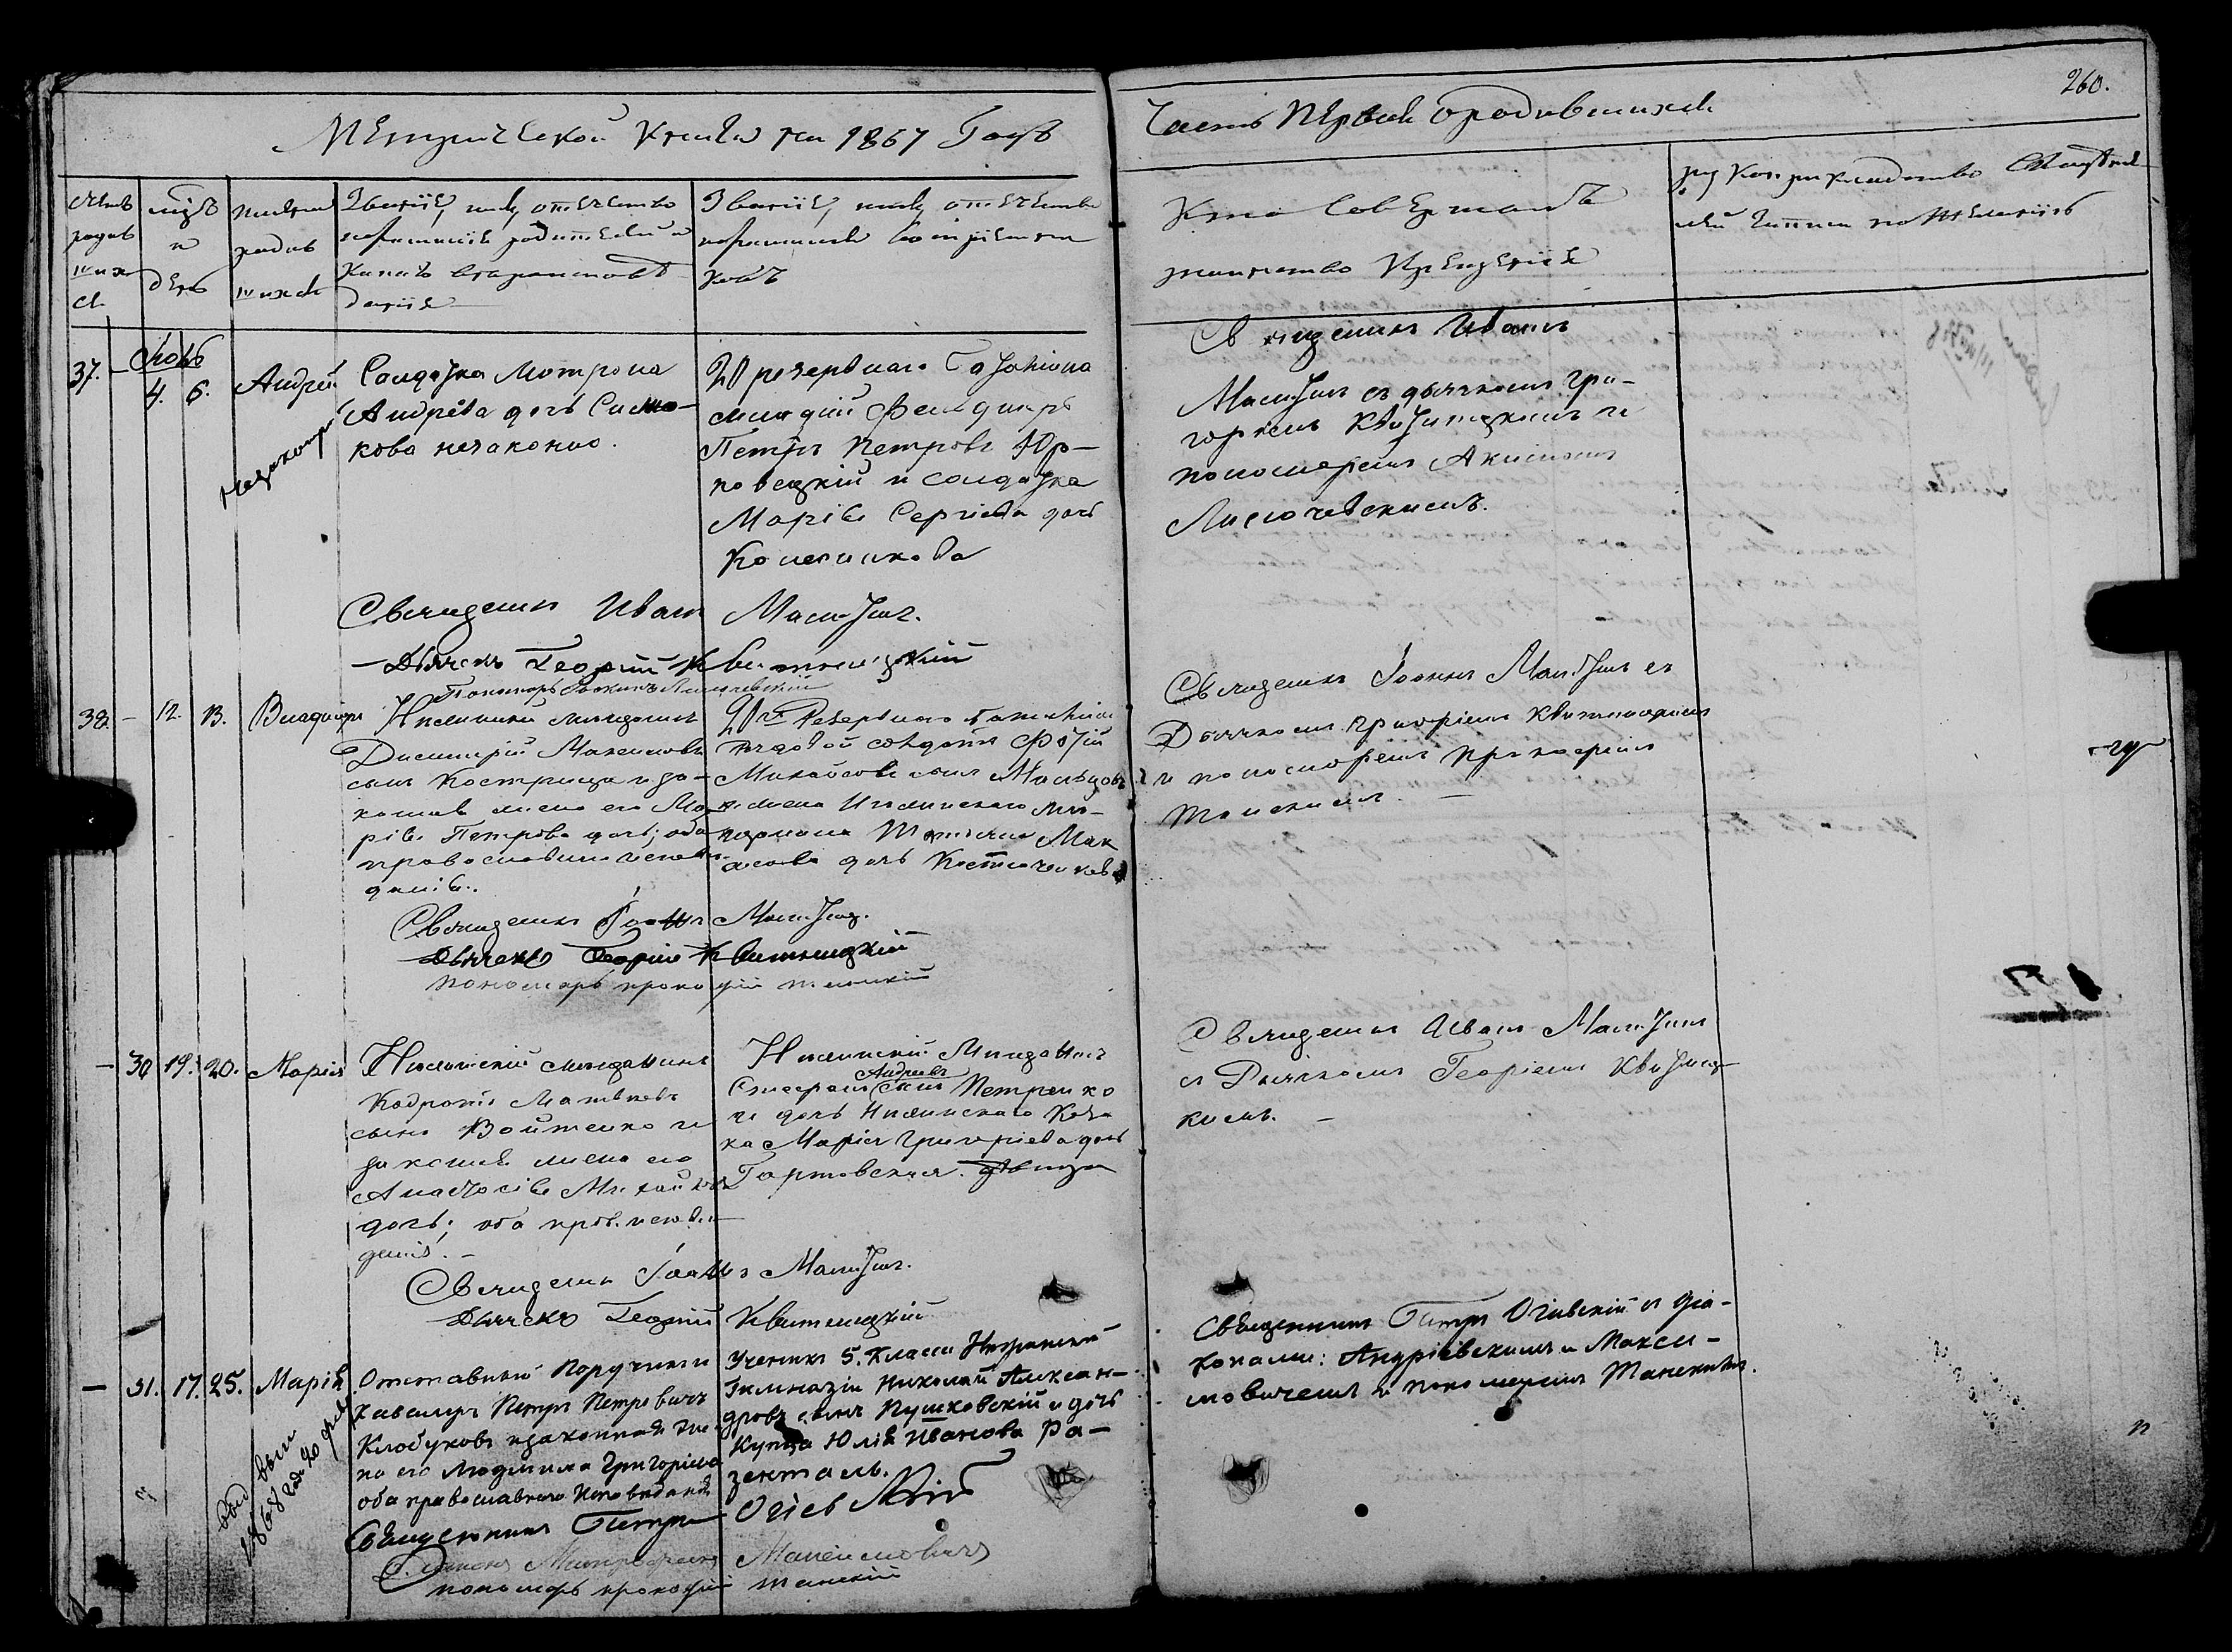 Метрической Книги на 1867 Годъ
Часть Первая О родившихся
260.
Счетъ родив шихся
мѣсяцъ и день
имена родив шихся
Званіе, имя, отечество
и фамилія родителей и
какаго вѣроисповѣ
данія
Званіе, имя, отечество
и фамилія воспріемни
ковъ
Кто совершалъ
таинство Крещенія
Рукоприкладство свидѣте
лей записи по желанію
37. 4. 6. Андрей
незаконнор
Солдатка Мотрона
Андрѣева дочь
кова незаконно.
20 резервнаго Баталіона
младій Фельдшеръ
Петръ Петровъ Юр-
повецкій и солдатка
Марія Сергіева дочь
Колесникова
Священникъ Иванъ
съ дьячкомъ Гри-
горіемъ Квитницкимъ и
пономаремъ Акимомъ
Лисючевскимъ.
Священникъ Иванъ
Дьячекъ Георгій Квитницкій
Пономарь
38. - 12. 13. Владиміръ
Нѣжинскій мѣщанинъ
Димитрій Максимовъ
сынъ Кострица и за-
конная жена его Ма-
рія Петрова дочь; оба
православнаго исповѣ-
данія.
20го Резервнаго Баталіона
рядовой солдатъ Фотій
Михайловъ сынъ Мальцовъ
и жена Нѣжинскаго
Татіана Мак
симова дочь
Священникъ Іоаннъ съ
Дьячкомъ Григоріемъ Квитницкимъ
и пономаремъ Прокофіемъ
Танскимъ. -
Священникъ Іоаннъ
Дьячекъ Георгій Квитницкій
пономарь Прокофій Танскій
- 30 19. 20. Марія
Нѣжинскій мѣщанинъ
Кодратъ Матвѣевъ
сынъ Войтенко и
законная жена его
Анастасія Михайлова
дочь; оба прав. исповѣ-
данія. -
Нѣжинскій Мѣщанинъ
Андреевъ
Стефанъ сынъ Петренко
и дочь Нѣжинскаго Коза
ка Марія Григоріева дочь
Гартовская. дѣвица
Священникъ Иванъ
съ Дьячкомъ Георгіемъ Квитниц-
кимъ. -
Священникъ Іоаннъ
Дьячекъ Георгій Квитницкій
- 31. 17. 25. Марія
выд
1868 года 20 фев
Отставный Поручикъ и
Кавалеръ Петръ Петровичъ
Клобуковъ и законная же-
на его Людмила Григоріева
оба православнаго Исповѣданія
Ученикъ 5. класса Нѣжинской
Гимназіи Николай Алексан-
дровъ сынъ Пушковскій и дочь
Купца Юлія Иванова Ро-
зенталь.
Священникъ Петръ Огіевскій съ діа-
конами: Андріевскимъ и Макси-
мовичемъ и пономаремъ Танскимъ.
Священникъ Петръ Огіевскій
Діаконъ Митрофанъ Максимовичъ
пономарь Прокофій Танскій